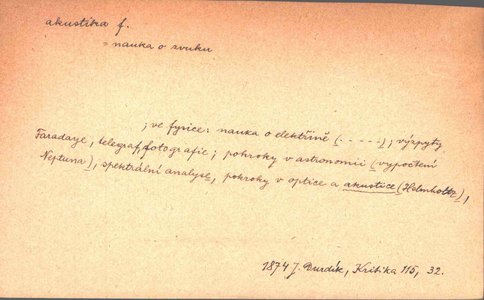 akustika f.
= nauka o zvuku
; ve fysice: nauka o elektřině (.....); výzpyty
Faradaye, telegraf, fotografie; pokroky v astronomii (vypočtení
Neptuna), spektrální analyse, pokroky v optice a akustice (Helmholtz),
1874 J. Durdík, Kritika 115, 32.